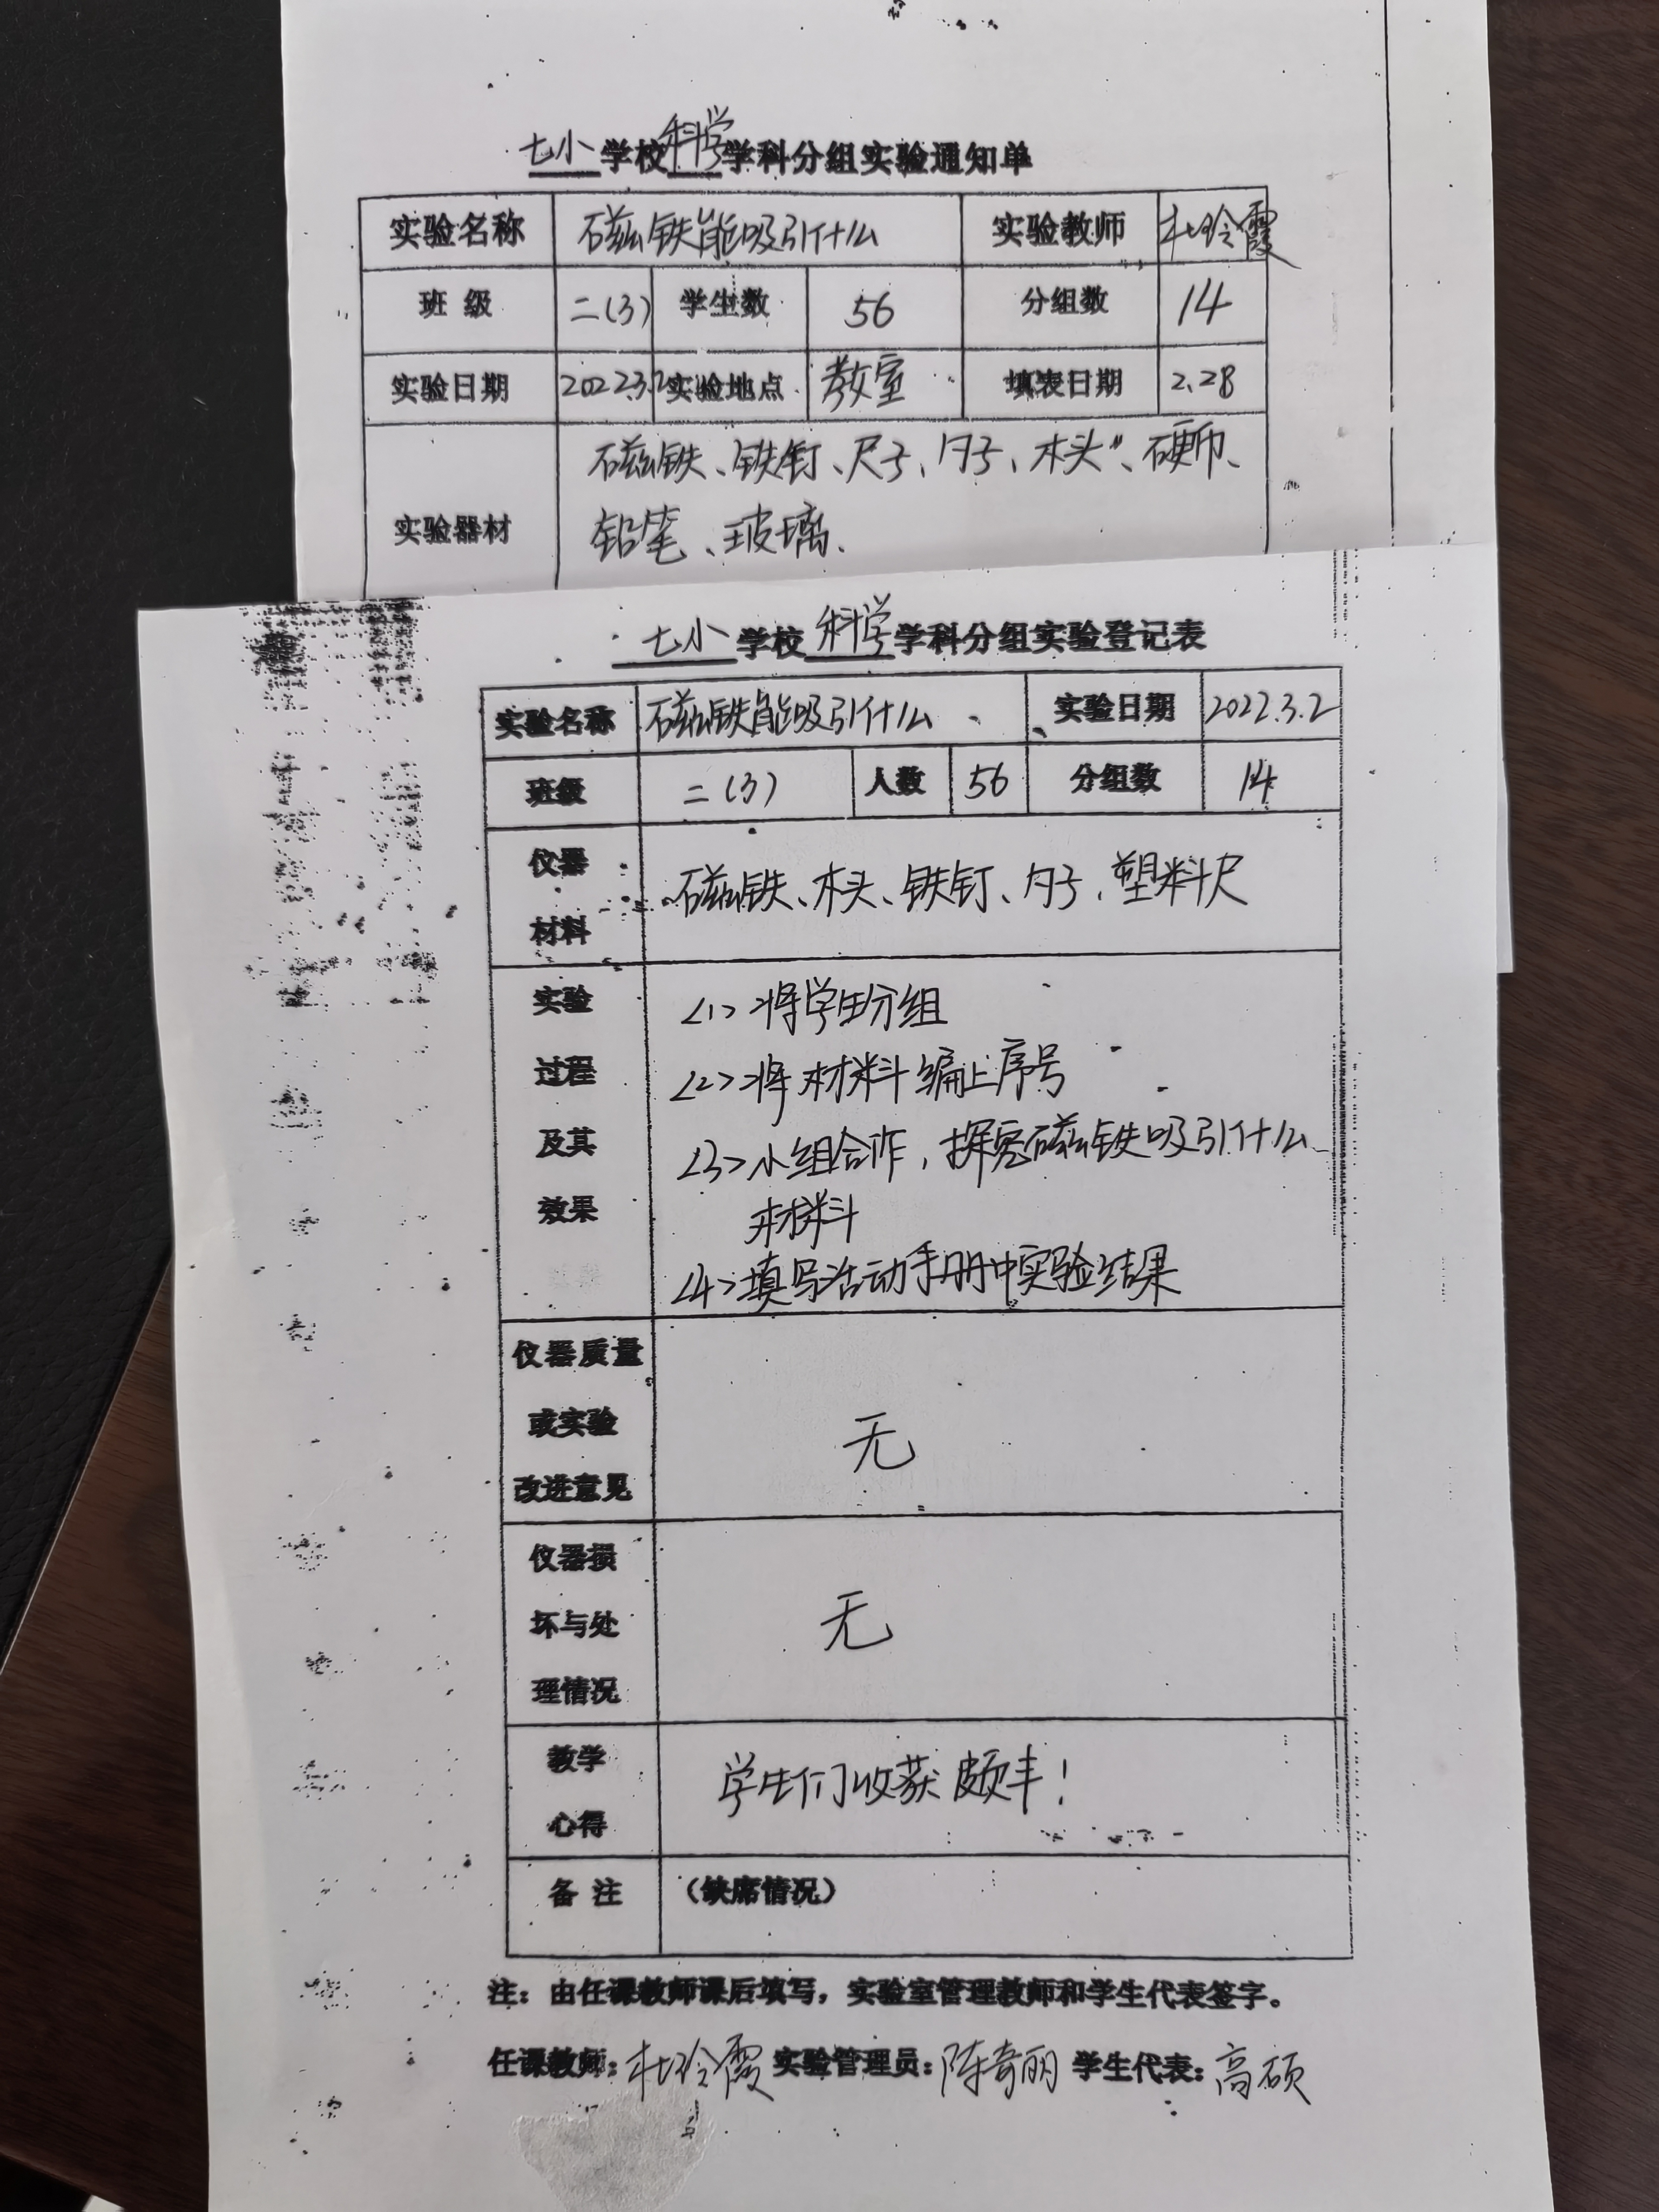 七小学校科学学科分组实验通知单
实验名称 磁铁能吸引什么 实验教师 杜玲霞
班级 二(3) 学生数 56 分组数 14
实验日期 2022.3.2 实验地点 教室 填表日期 2.28
磁铁、铁钉、尺子、勺子、木头、硬币、
实验器材 铅笔、玻璃、
七小学校科学学科分组实验登记表
实验名称 磁铁能吸引什么 实验日期 2022.3.2
班级 二(3) 人数 56 分组数 14
仪器
材料 磁铁、木头、铁钉、勺子、塑料尺
实验
过程
及其
效果
<1>将学生分组
<2>将材料编上序号
<3>小组合作,探究磁铁吸引什么
材料
<4>填写活动手册中实验结果
仪器质量
或实验
改进意见
无
仪器损
坏与处
理情况
无
教学
心得
学生们收获颇丰!
备注 (缺席情况)
注:由任课教师课后填写,实验室管理教师和学生代表签字。
任课教师:杜玲霞 实验管理员:陈奇丽 学生代表:高硕